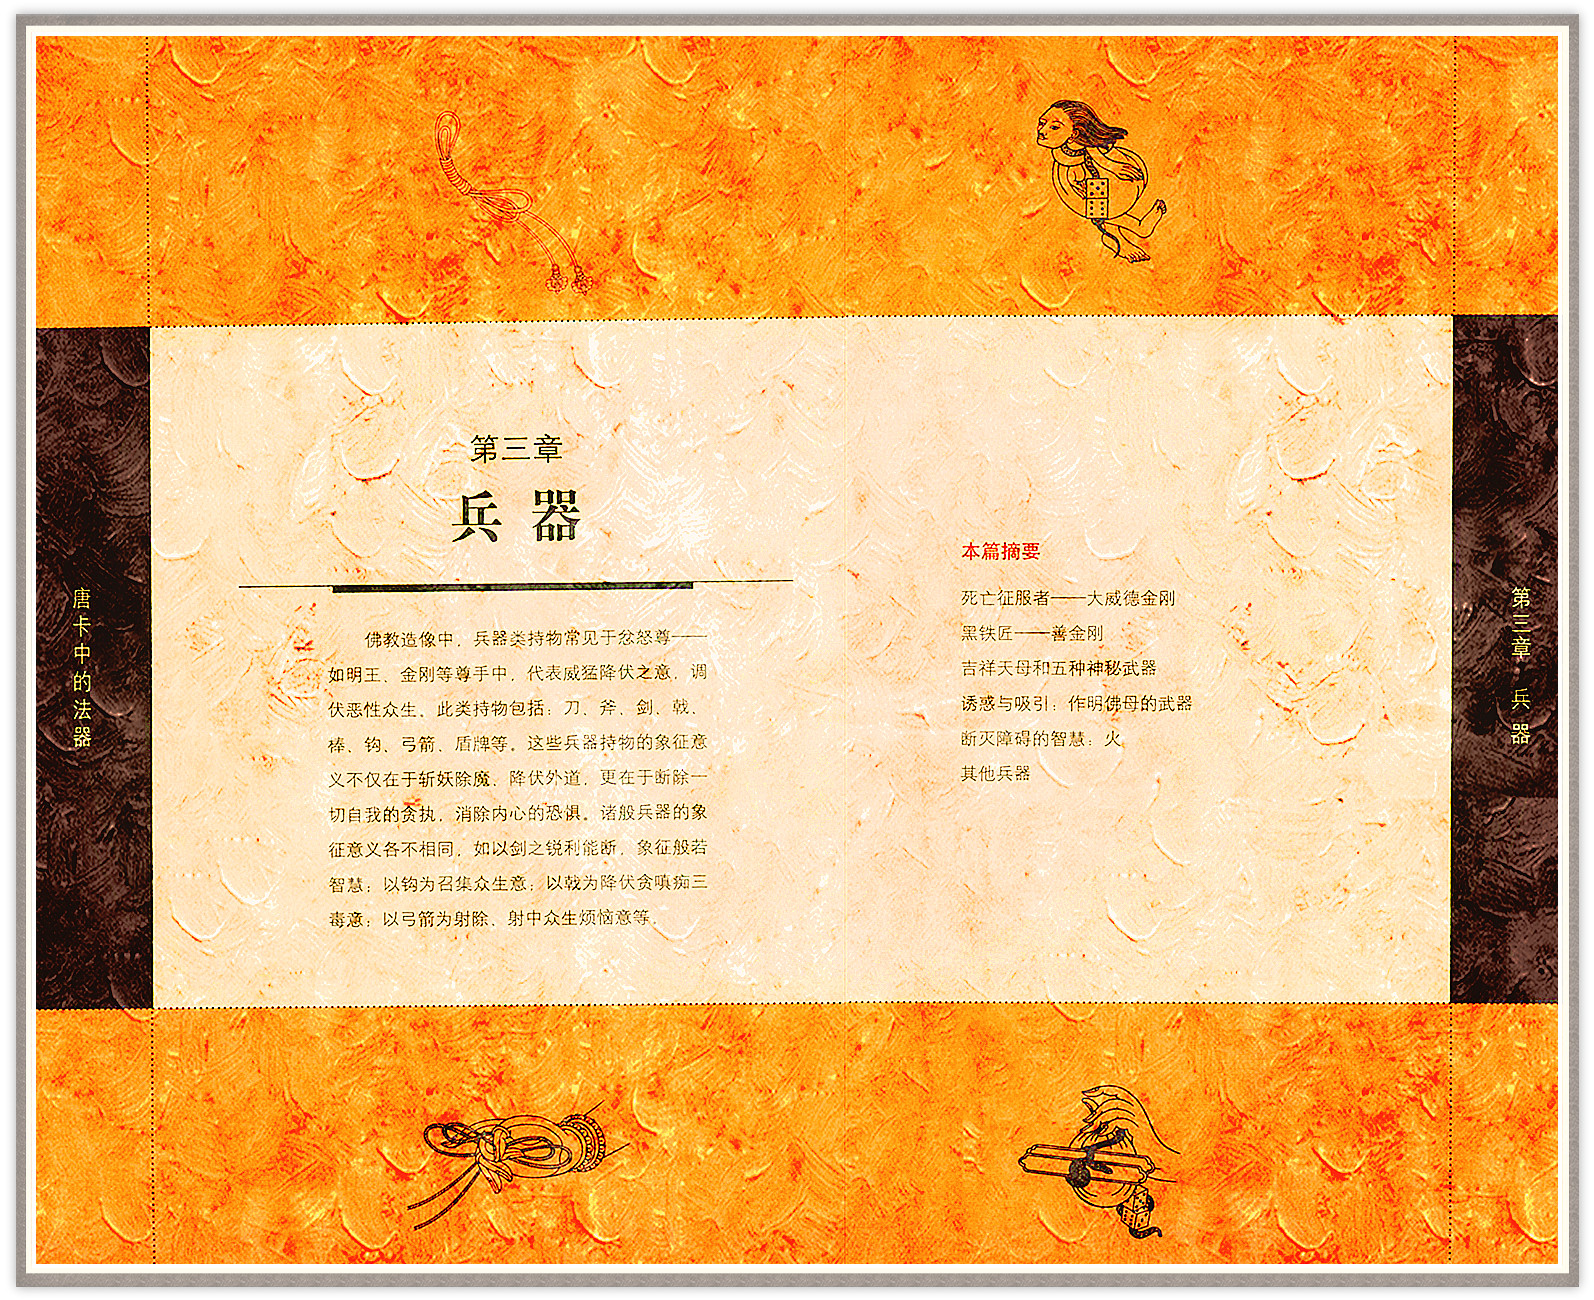 唐卡中的法器
第三章
兵器
佛教造像中，兵器类持物常见于忿怒尊——
如明王、金刚等尊手中，代表威猛降伏之意，调
伏恶性众生。此类持物包括：刀、斧、剑、戟、
棒、钩、弓箭、盾牌等。这些兵器持物的象征意
义不仅在于斩妖除魔、降伏外道，更在于断除一
切自我的贪执，消除内心的恐惧。诸般兵器的象
征意义各不相同，如以剑之锐利能断，象征般若
智慧；以钩为召集众生意；以戟为降伏贪嗔痴三
毒意；以弓箭为射除、射中众生烦恼意等。
本篇摘要
死亡征服者——大威德金刚
黑铁匠——善金刚
吉祥天母和五种神秘武器
诱惑与吸引：作明佛母的武器
断灭障碍的智慧：火
其他兵器
第三章 兵器